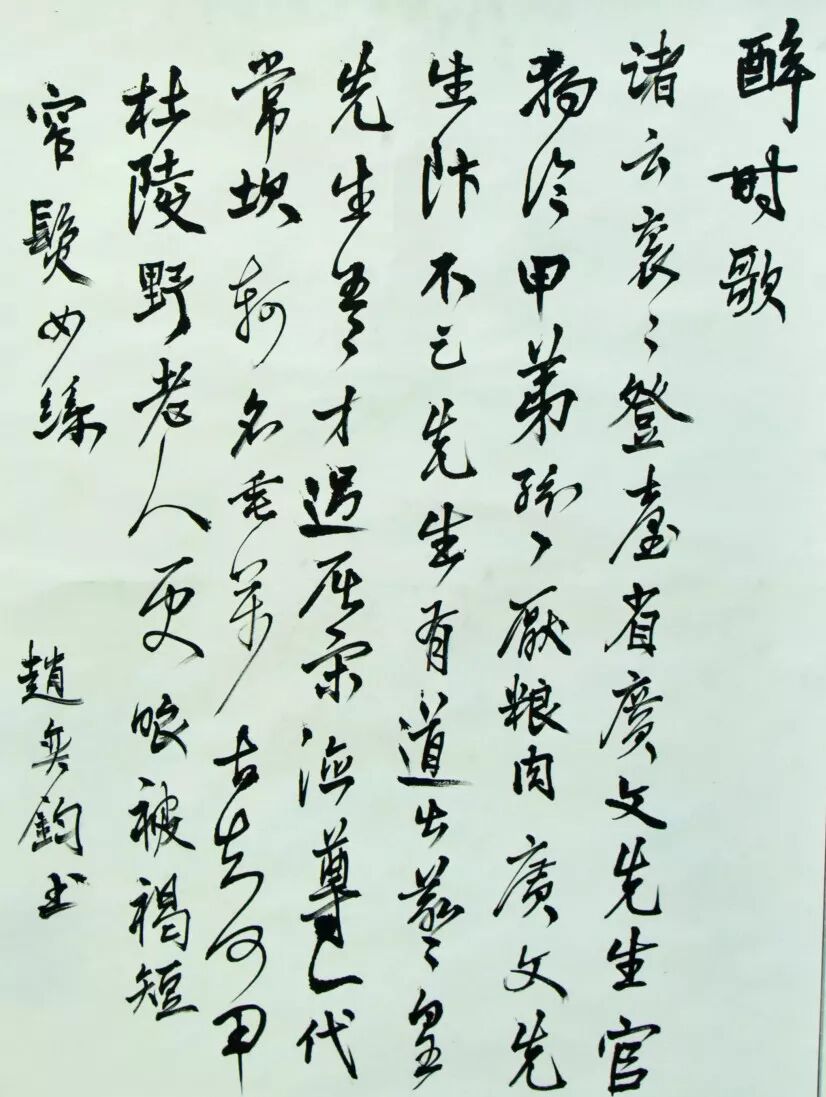 醉时歌
诸公衮々登臺省廣文先生官
独冷甲弟纷々厭粮肉廣文先
生飰不足先生有道出羲々皇
先生有才過屈宋德尊一代
常坎轲名垂萬古知何用
杜陵野老人更嗤被褐短
窄鬓如絲
趙奕鈞书